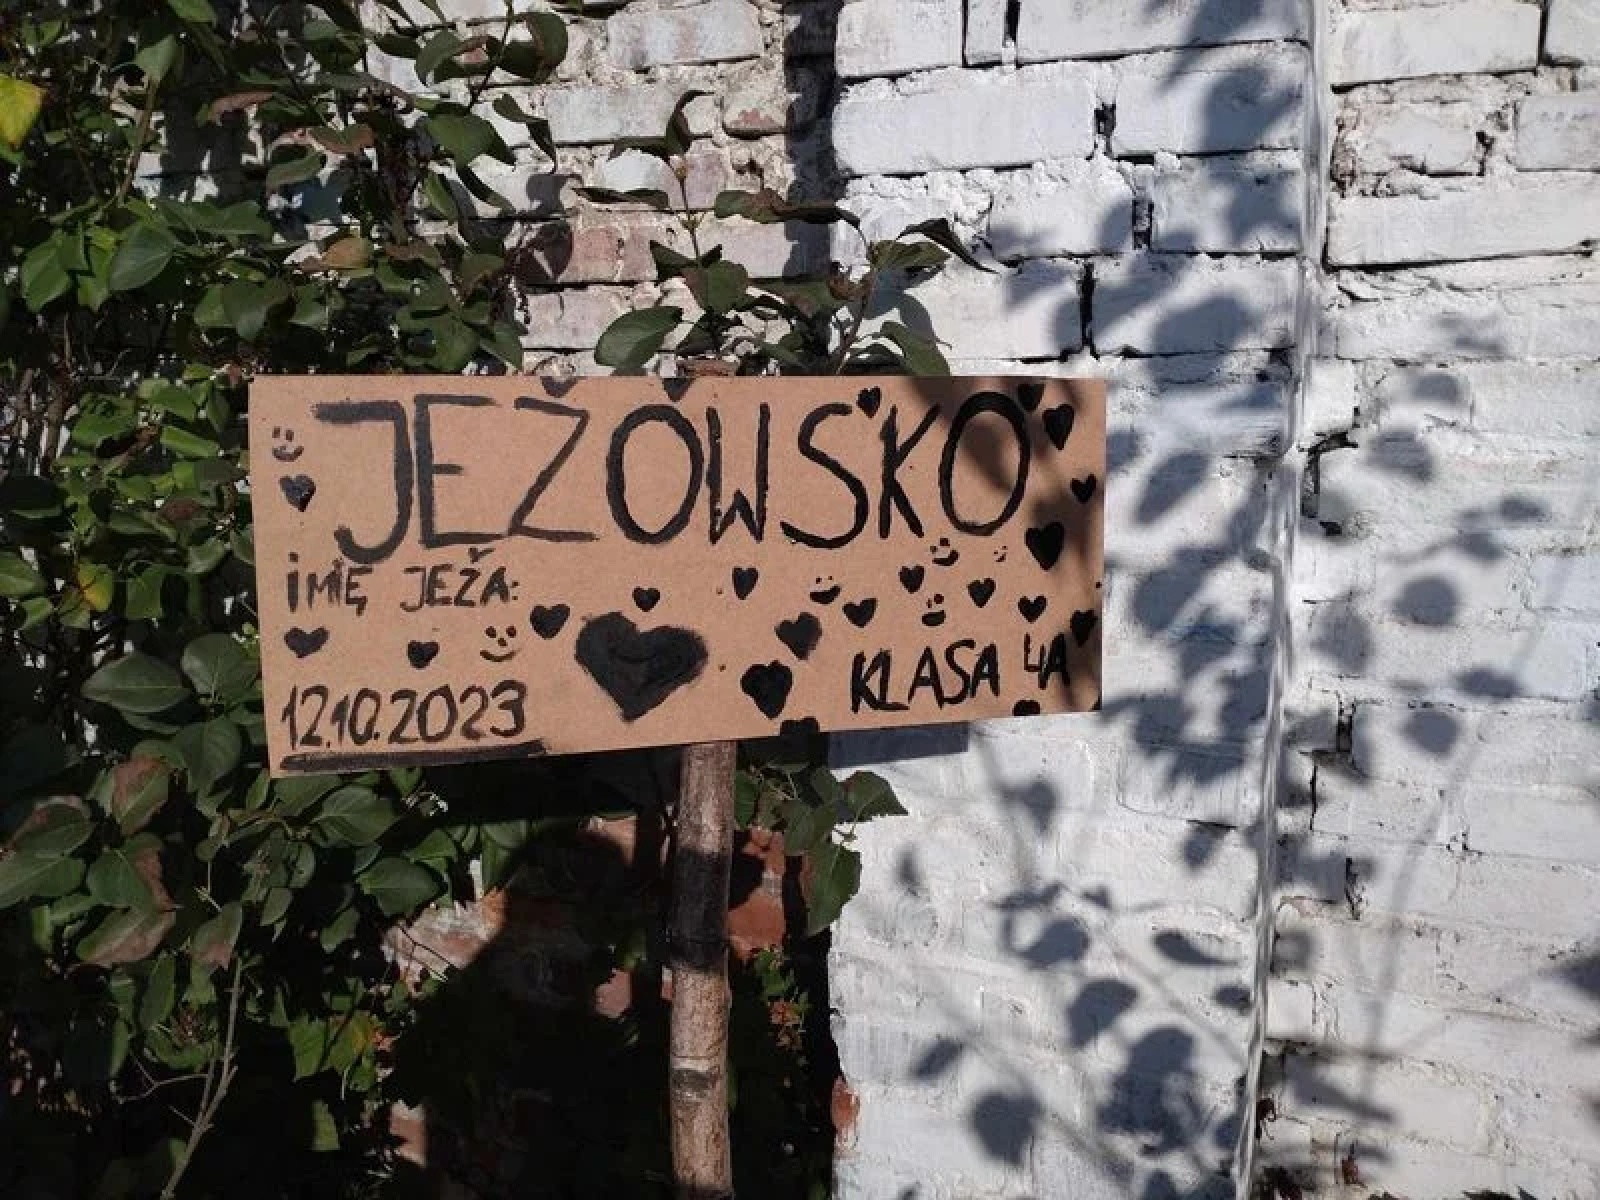 JEŻOWSKO
iMIĘ JEŻA:
12.10.2023
KLASA 4A